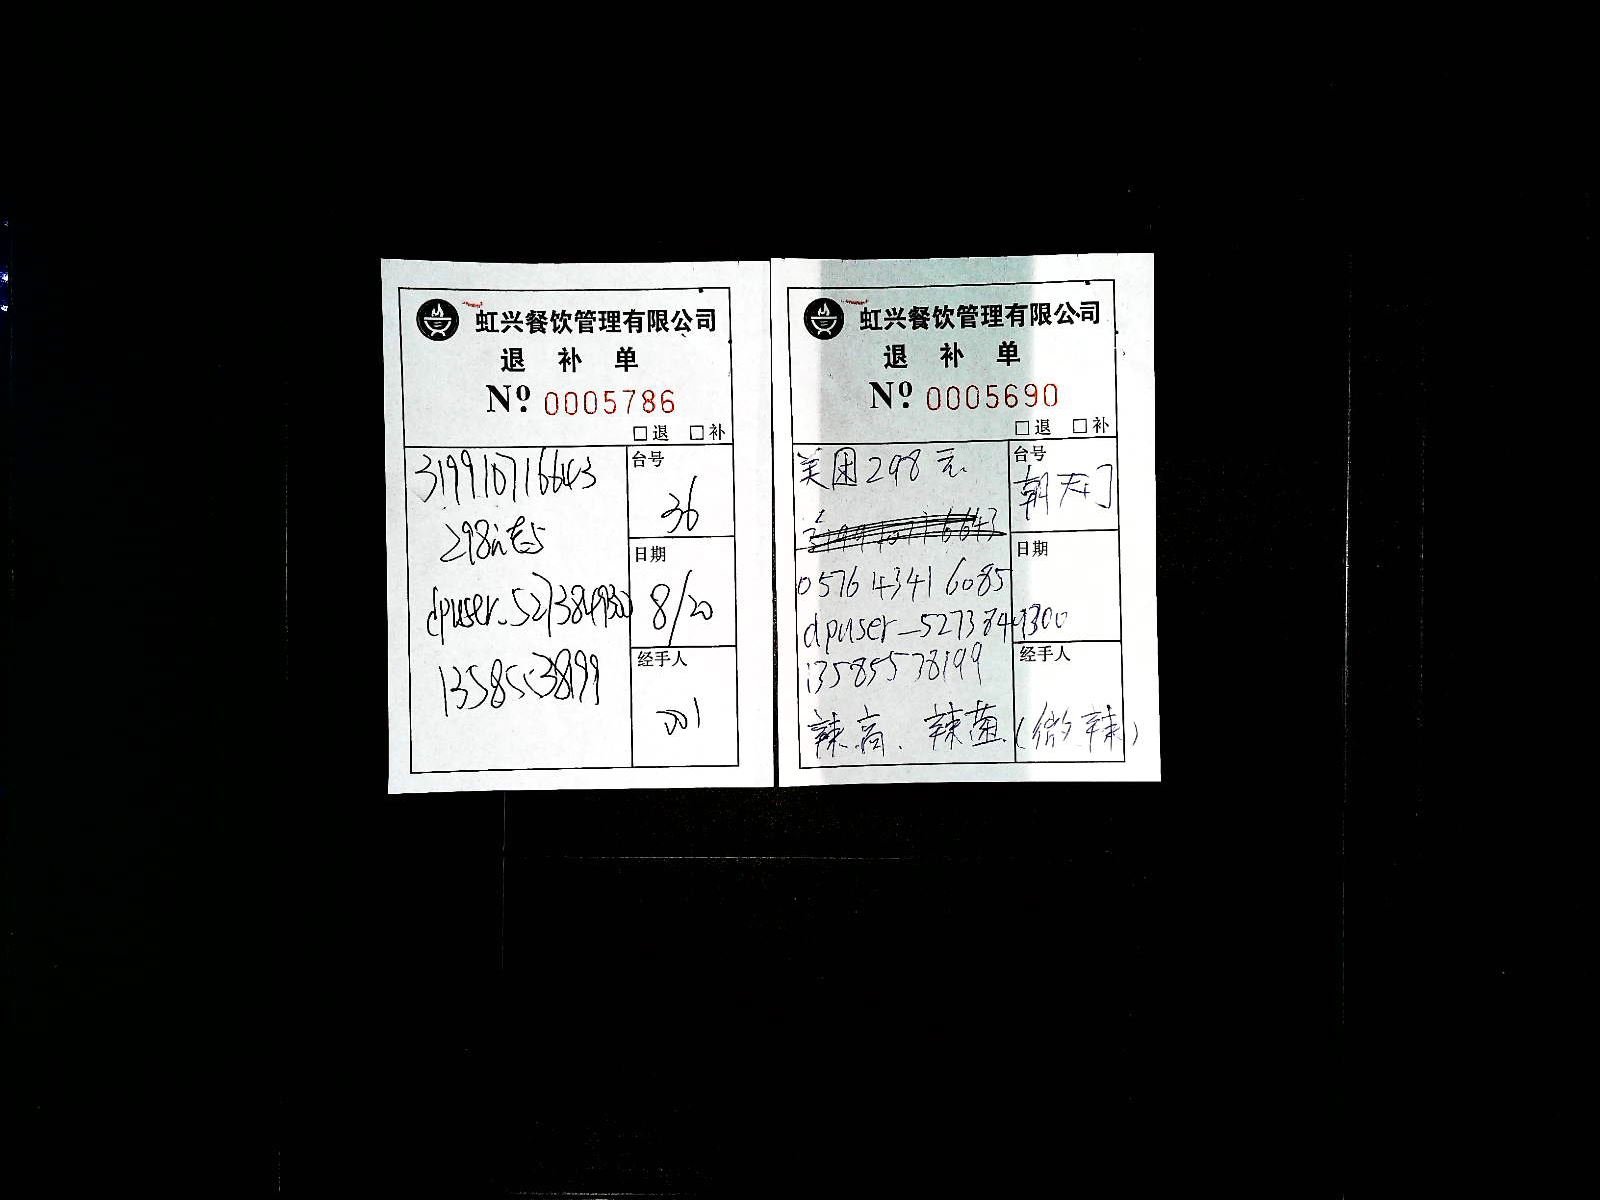 虹兴餐饮管理有限公司
退 补 单
Nº 0005786
□退 □补
319910716643
298
dpuser_5273849300
13585538199
台号
36
日期
8/20
经手人
001
虹兴餐饮管理有限公司
退 补 单
Nº 0005690
□退 □补
美团298元
0576 4341 6085
dpuser_5273849300
13585538199
辣高、辣菌(微辣)
台号
朝天门
日期
经手人